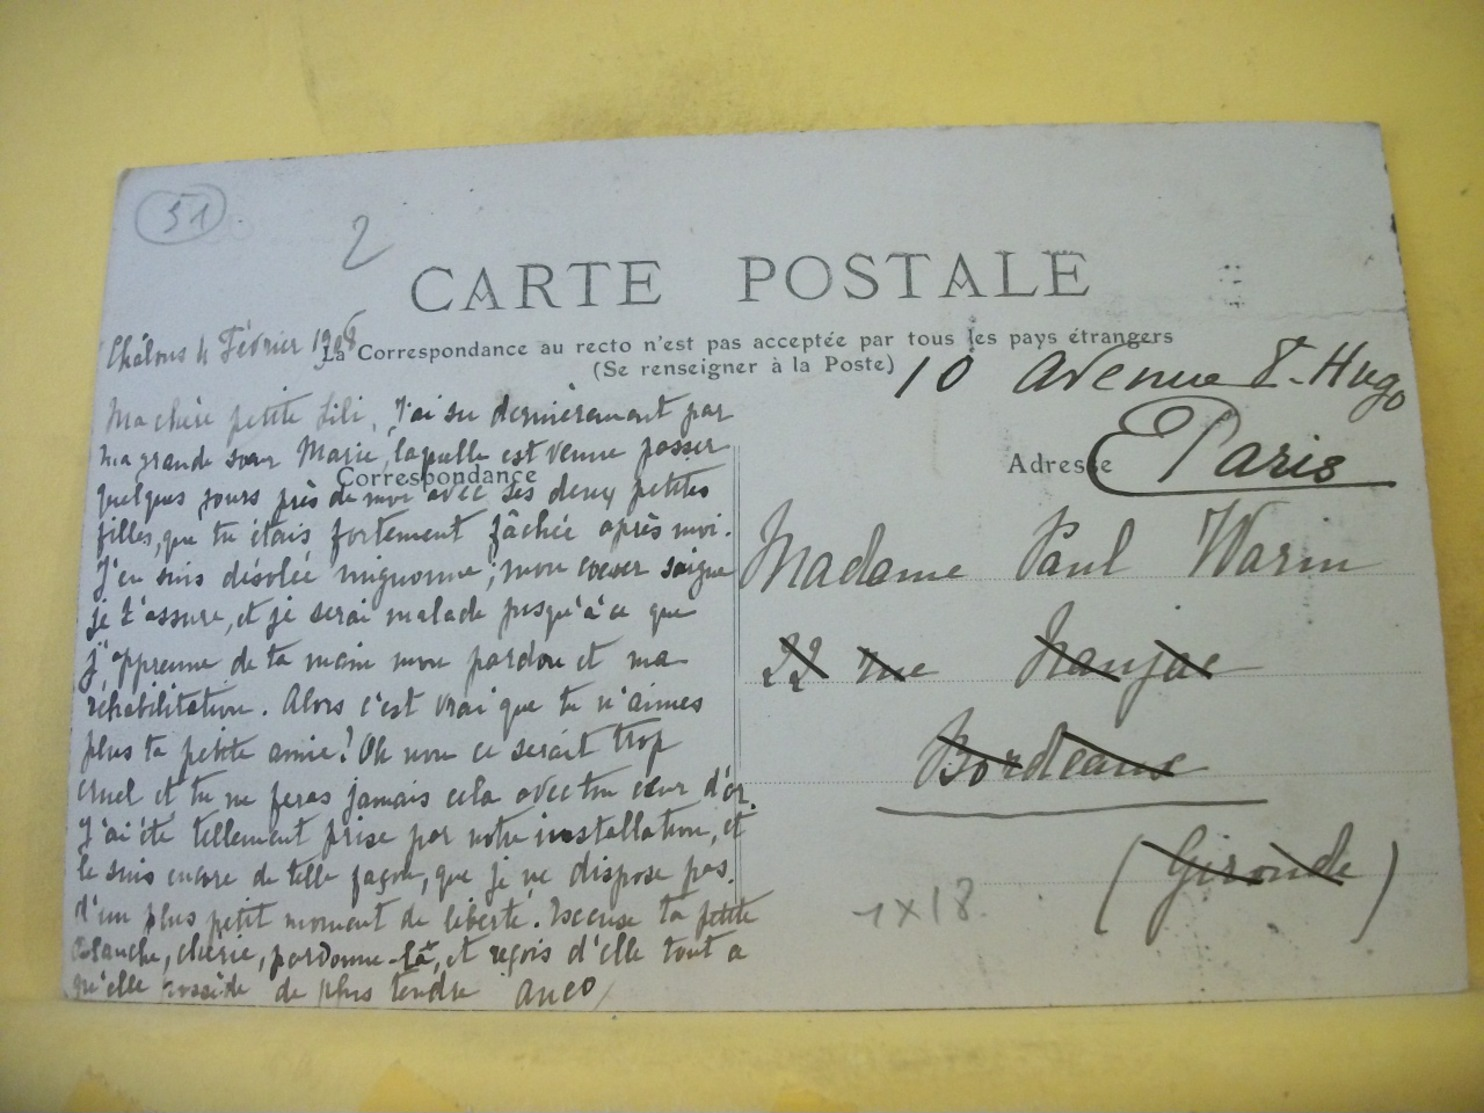 51
2
CARTE POSTALE
La Correspondance au recto n'est pas acceptée par tous les pays étrangers
(Se renseigner à la Poste)
Correspondance
Adresse
Châlons 4 Février 1908
Ma chère petite Lili, J'ai su dernièrement par
ma grande sœur Marie, laquelle est venue passer
quelques jours près de moi avec ses deux petites
filles, que tu étais fortement fâchée après moi.
J'en suis désolée mignonne; mon coeur saigne
je t'assure, et je serai malade jusqu'à ce que
j'apprenne de ta main mon pardon et ma
réhabilitation. Alors c'est vrai que tu n'aimes
plus ta petite amie! Oh non ce serait trop
cruel et tu ne feras jamais cela avec ton cœur d'or.
J'ai été tellement prise par notre installation, et
le suis encore de telle façon, que je ne dispose pas
d'un plus petit moment de liberté. Excuse ta petite
Blanche, chérie, pardonne-là, et reçois d'elle tout ce
qu'elle possède de plus tendre
10 Avenue V. Hugo
Paris
Madame Paul Warin
22 rue Naujac
Bordeaux
(Gironde)
1X18